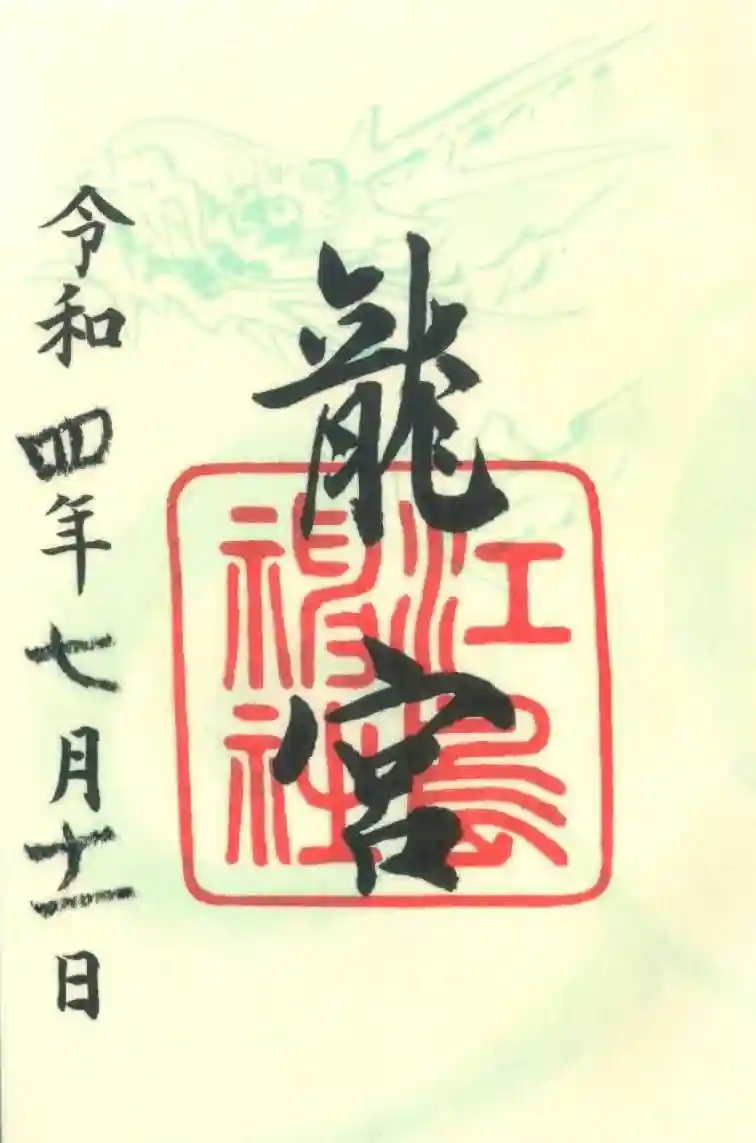 龍宮
江島
神社
令和四年七月十一日